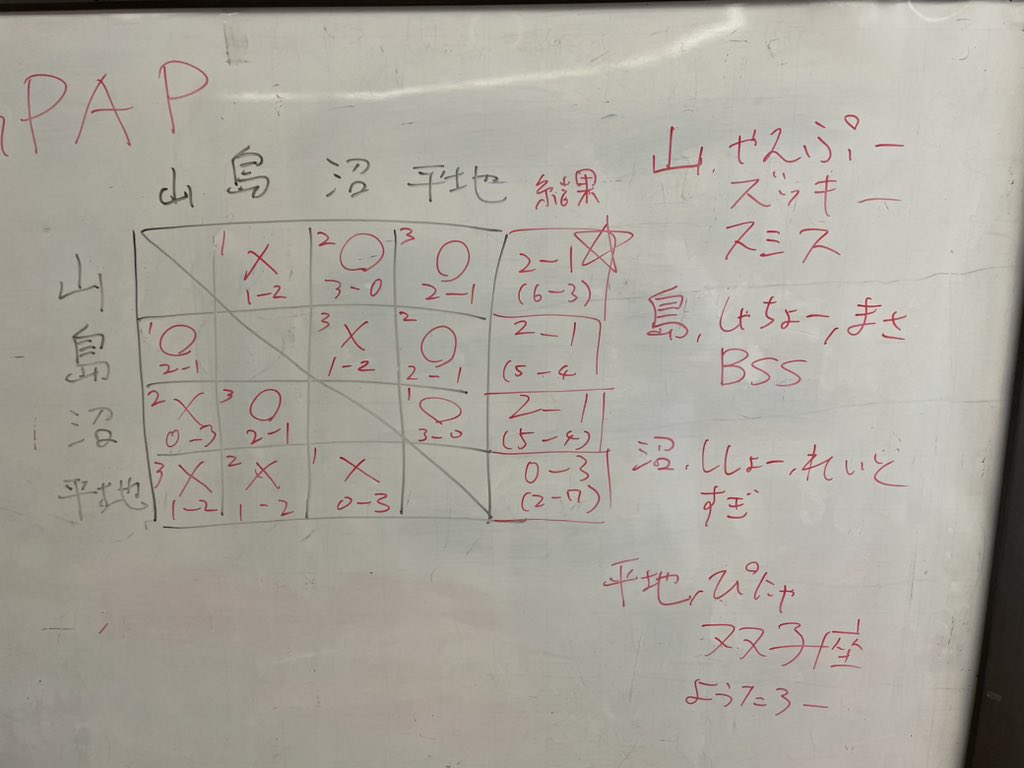 PAP
山 島 沼 平地 結果
山 1 × 1-2 2 ○ 3-0 3 ○ 2-1 2-1 ☆ (6-3)
島 1 ○ 2-1 3 × 1-2 2 ○ 2-1 2-1 (5-4
沼 2 × 0-3 3 ○ 2-1 1 ○ 3-0 2-1 (5-4)
平地 3 × 1-2 2 × 1-2 1 × 0-3 0-3 (2-7)
山、やんぷー
ズッキー
スミス
島、しゃちょー、まさ
BSS
沼、ししょー、れいど
すぎ
平地、ぴにゃ
双子座
ようたろー